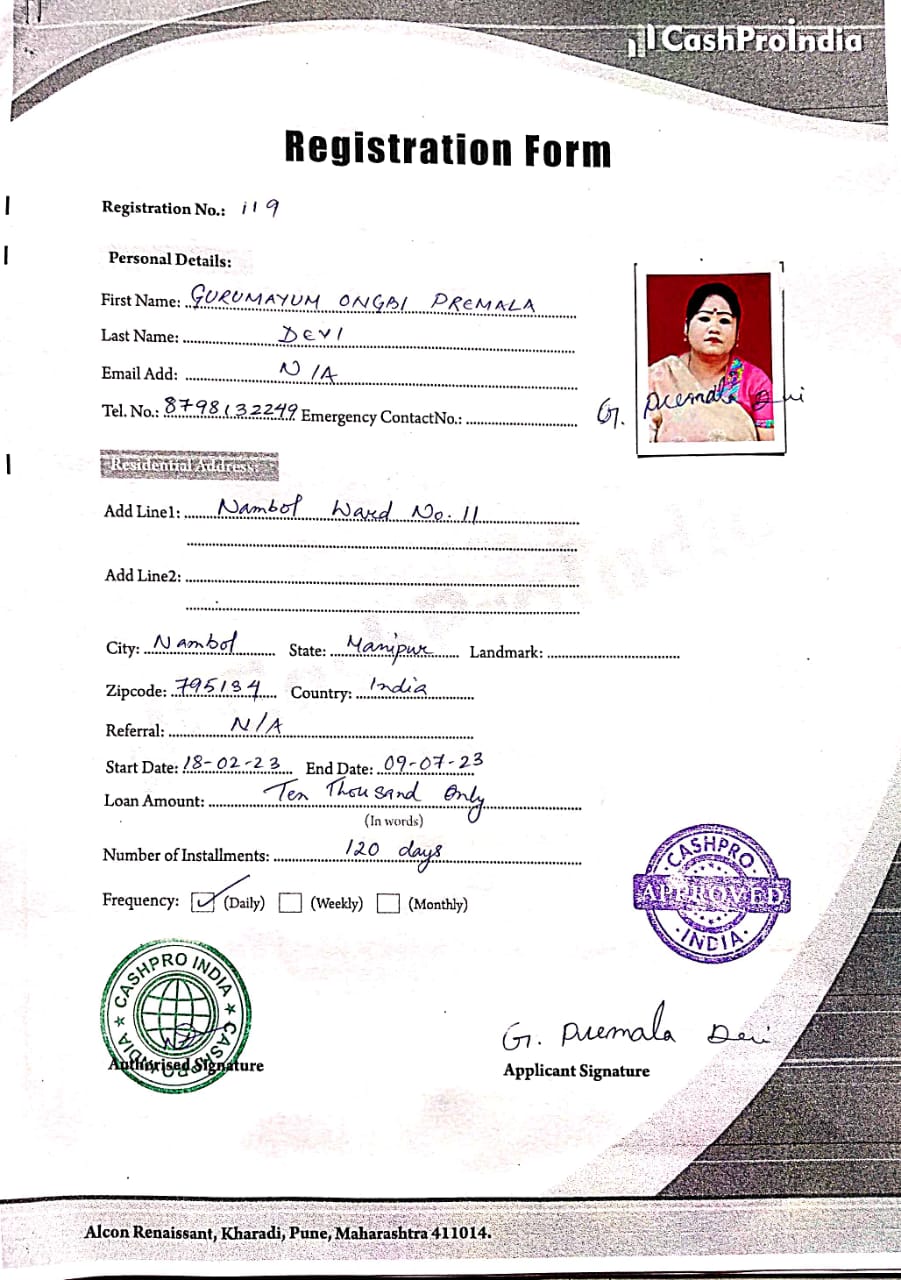 CashProIndia
Registration Form
Registration No.: 119
Personal Details:
First Name: GURUMAYUM ONGBI PREMALA
Last Name: DEVI
Email Add: N/A
Tel. No.: 8798132249 Emergency ContactNo.:
G. Premala Devi
Residential Address:
Add Line1: Nambol Ward No. 11
Add Line2:
City: Nambol State: Manipur Landmark:
Zipcode: 795134 Country: India
Referral: N/A
Start Date: 18-02-23 End Date: 09-07-23
Loan Amount: Ten Thousand Only
(In words)
Number of Installments: 120 days
Frequency: (Daily) (Weekly) (Monthly)
CASHPRO
APPROVED
INDIA
CASHPRO INDIA CASHPRO INDIA
G. Premala Devi
Authorised Signature Applicant Signature
Alcon Renaissant, Kharadi, Pune, Maharashtra 411014.